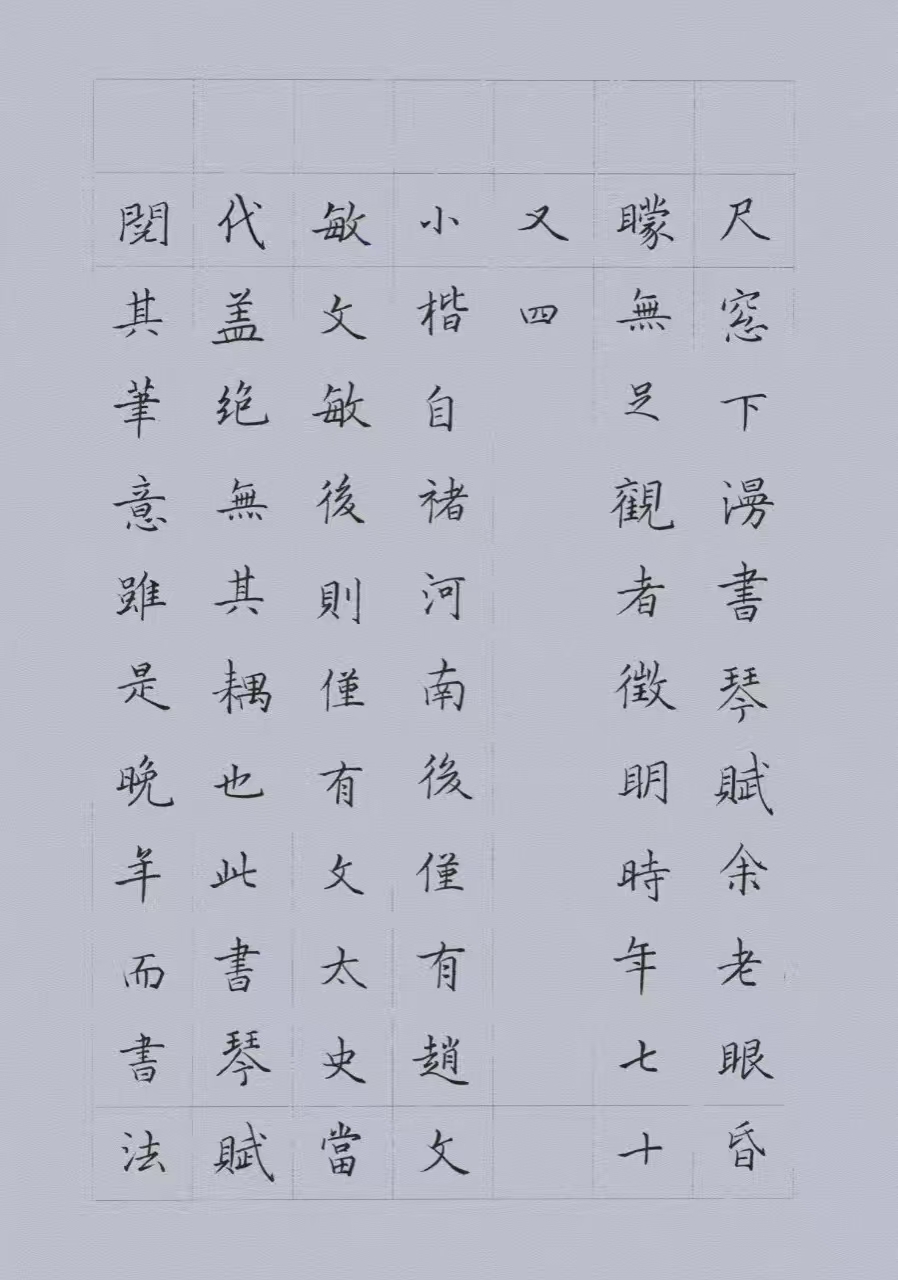 尺窓下漫書琴賦余老眼昏
矇無足觀者徵明時年七十
又四
小楷自褚河南後僅有趙文
敏文敏後則僅有文太史當
代盖绝無其耦也此書琴賦
閱其筆意雖是晚年而書法